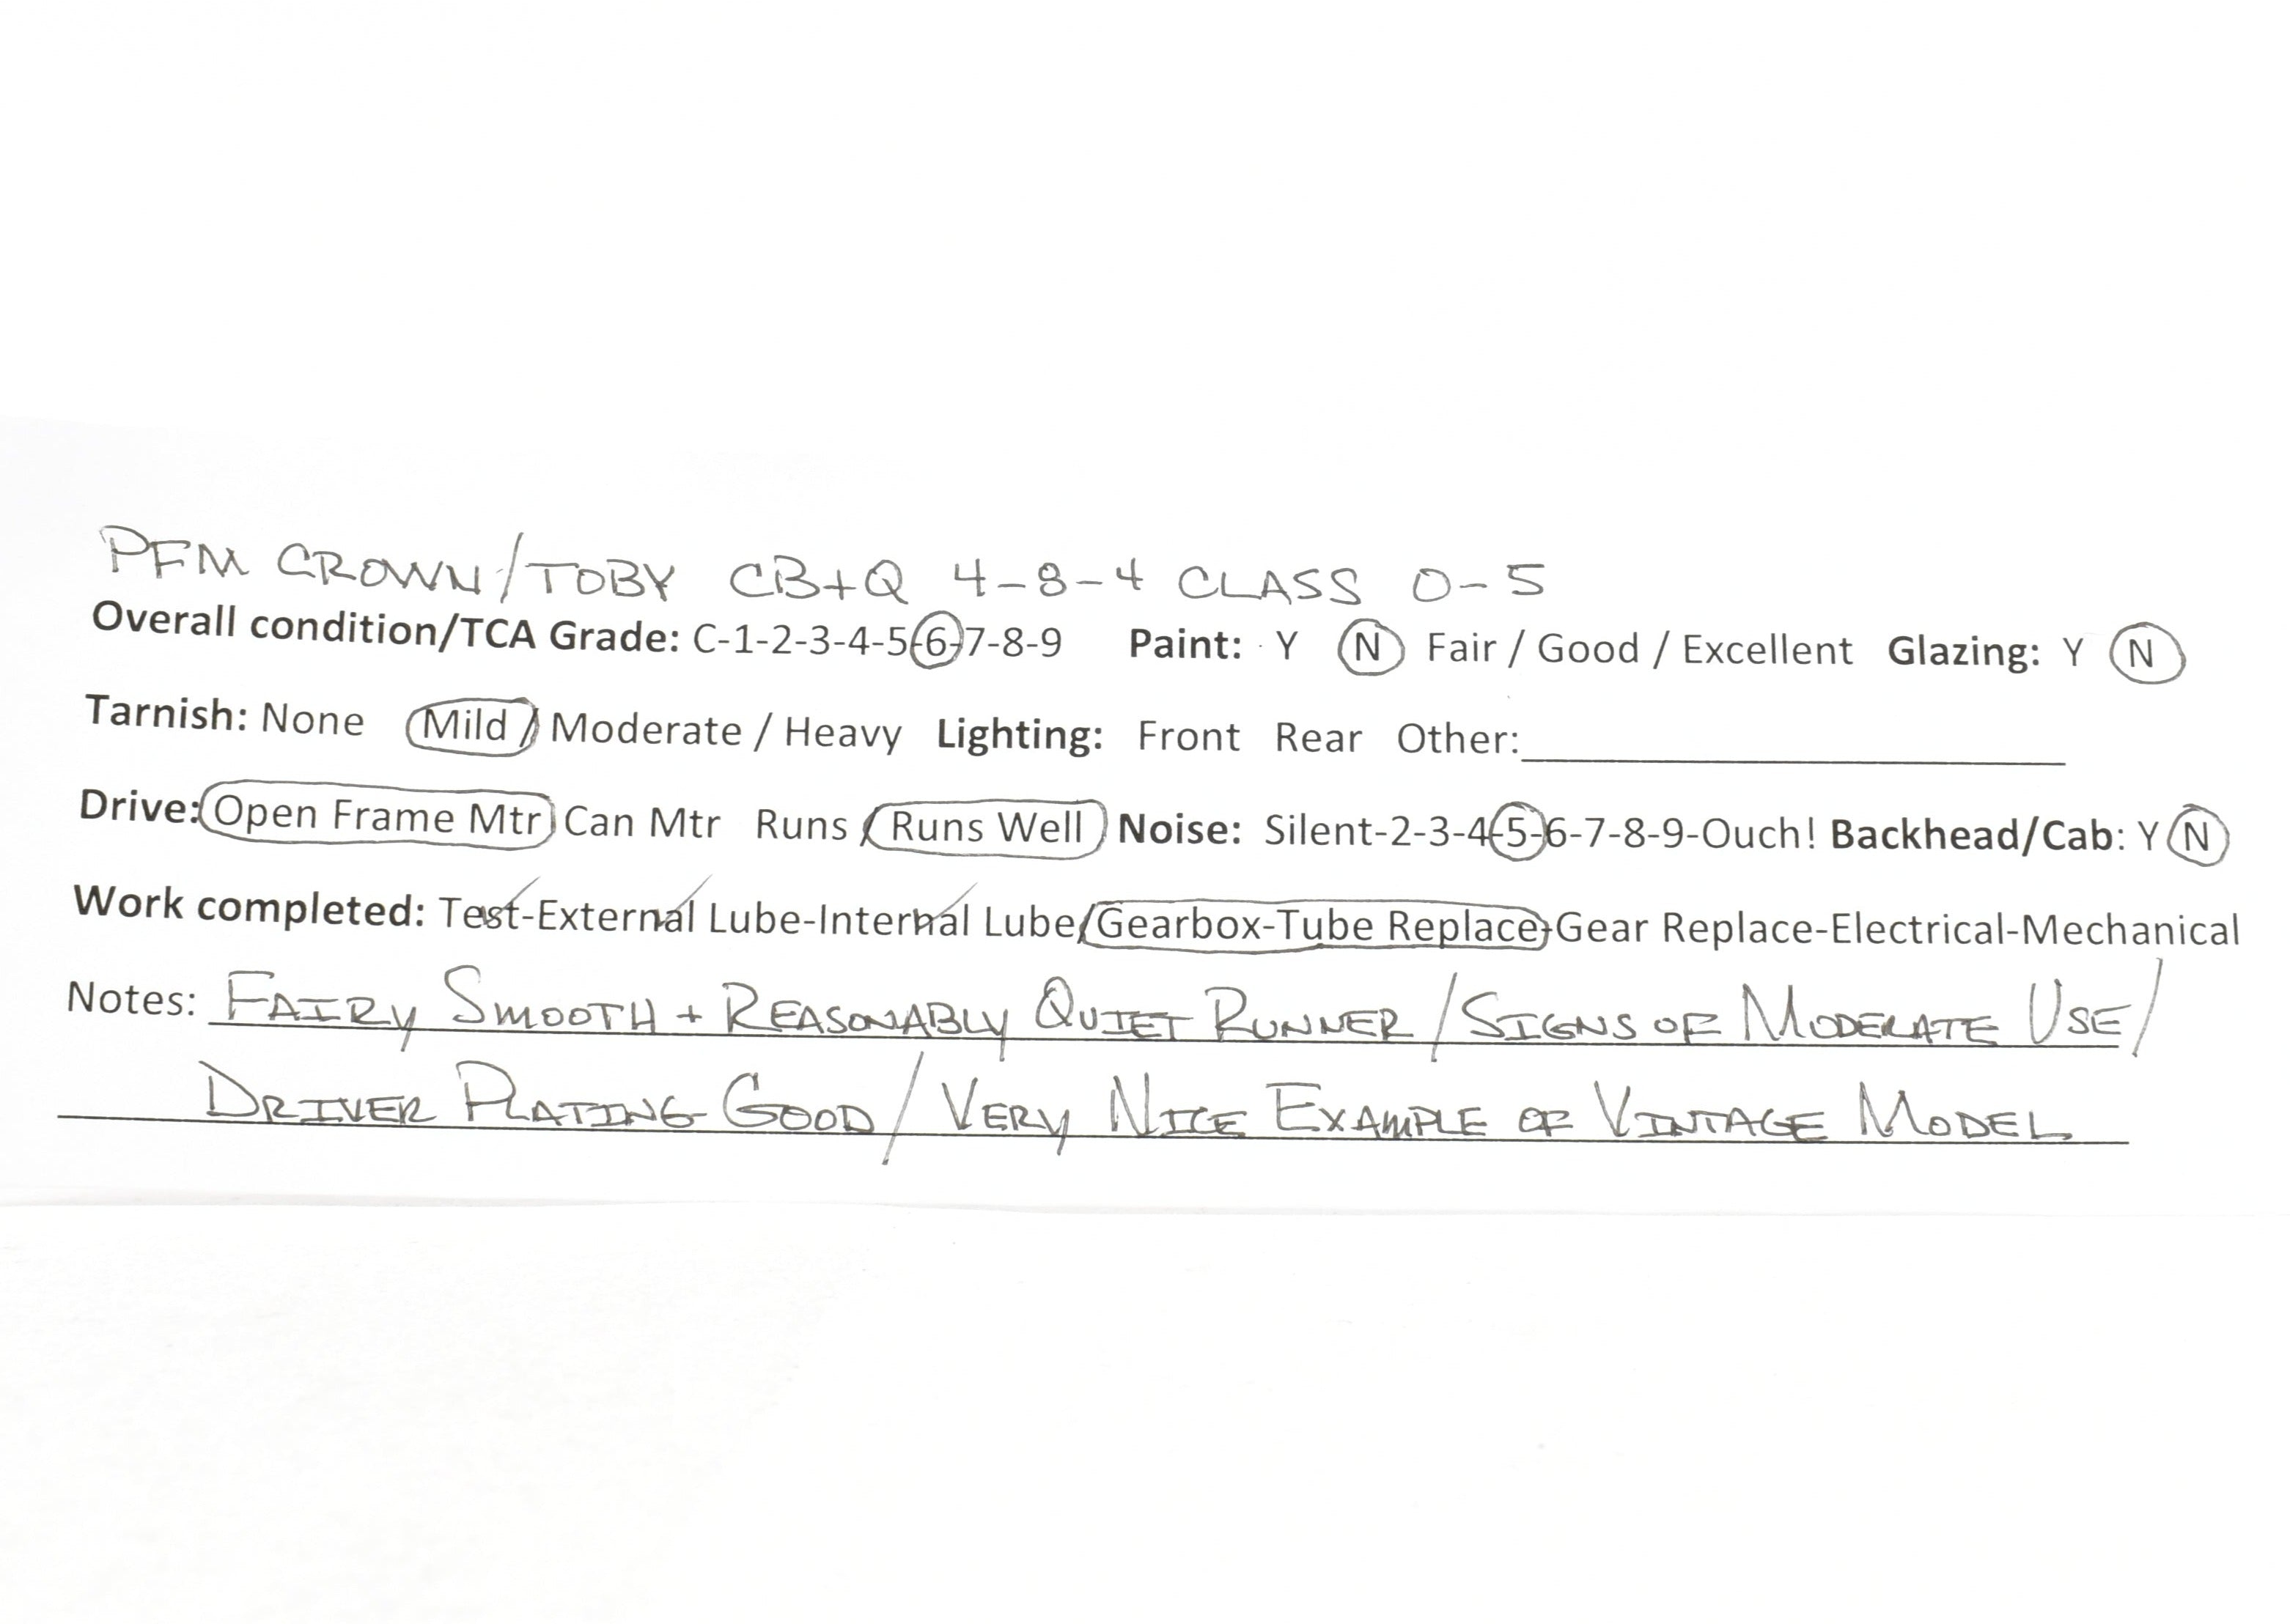 PFM CROWN/TOBY CB+Q 4-8-4 CLASS O-5
Overall condition/TCA Grade: C-1-2-3-4-5-6-7-8-9 Paint: Y N Fair / Good / Excellent Glazing: Y N
Tarnish: None Mild / Moderate / Heavy Lighting: Front Rear Other:
Drive: Open Frame Mtr Can Mtr Runs / Runs Well Noise: Silent-2-3-4-5-6-7-8-9-Ouch! Backhead/Cab: Y N
Work completed: Test-External Lube-Internal Lube/Gearbox-Tube Replace-Gear Replace-Electrical-Mechanical
Notes: FAIRY SMOOTH + REASONABLY QUIET RUNNER / SIGNS OF MODERATE USE /
DRIVER PLATING GOOD / VERY NICE EXAMPLE OF VINTAGE MODEL